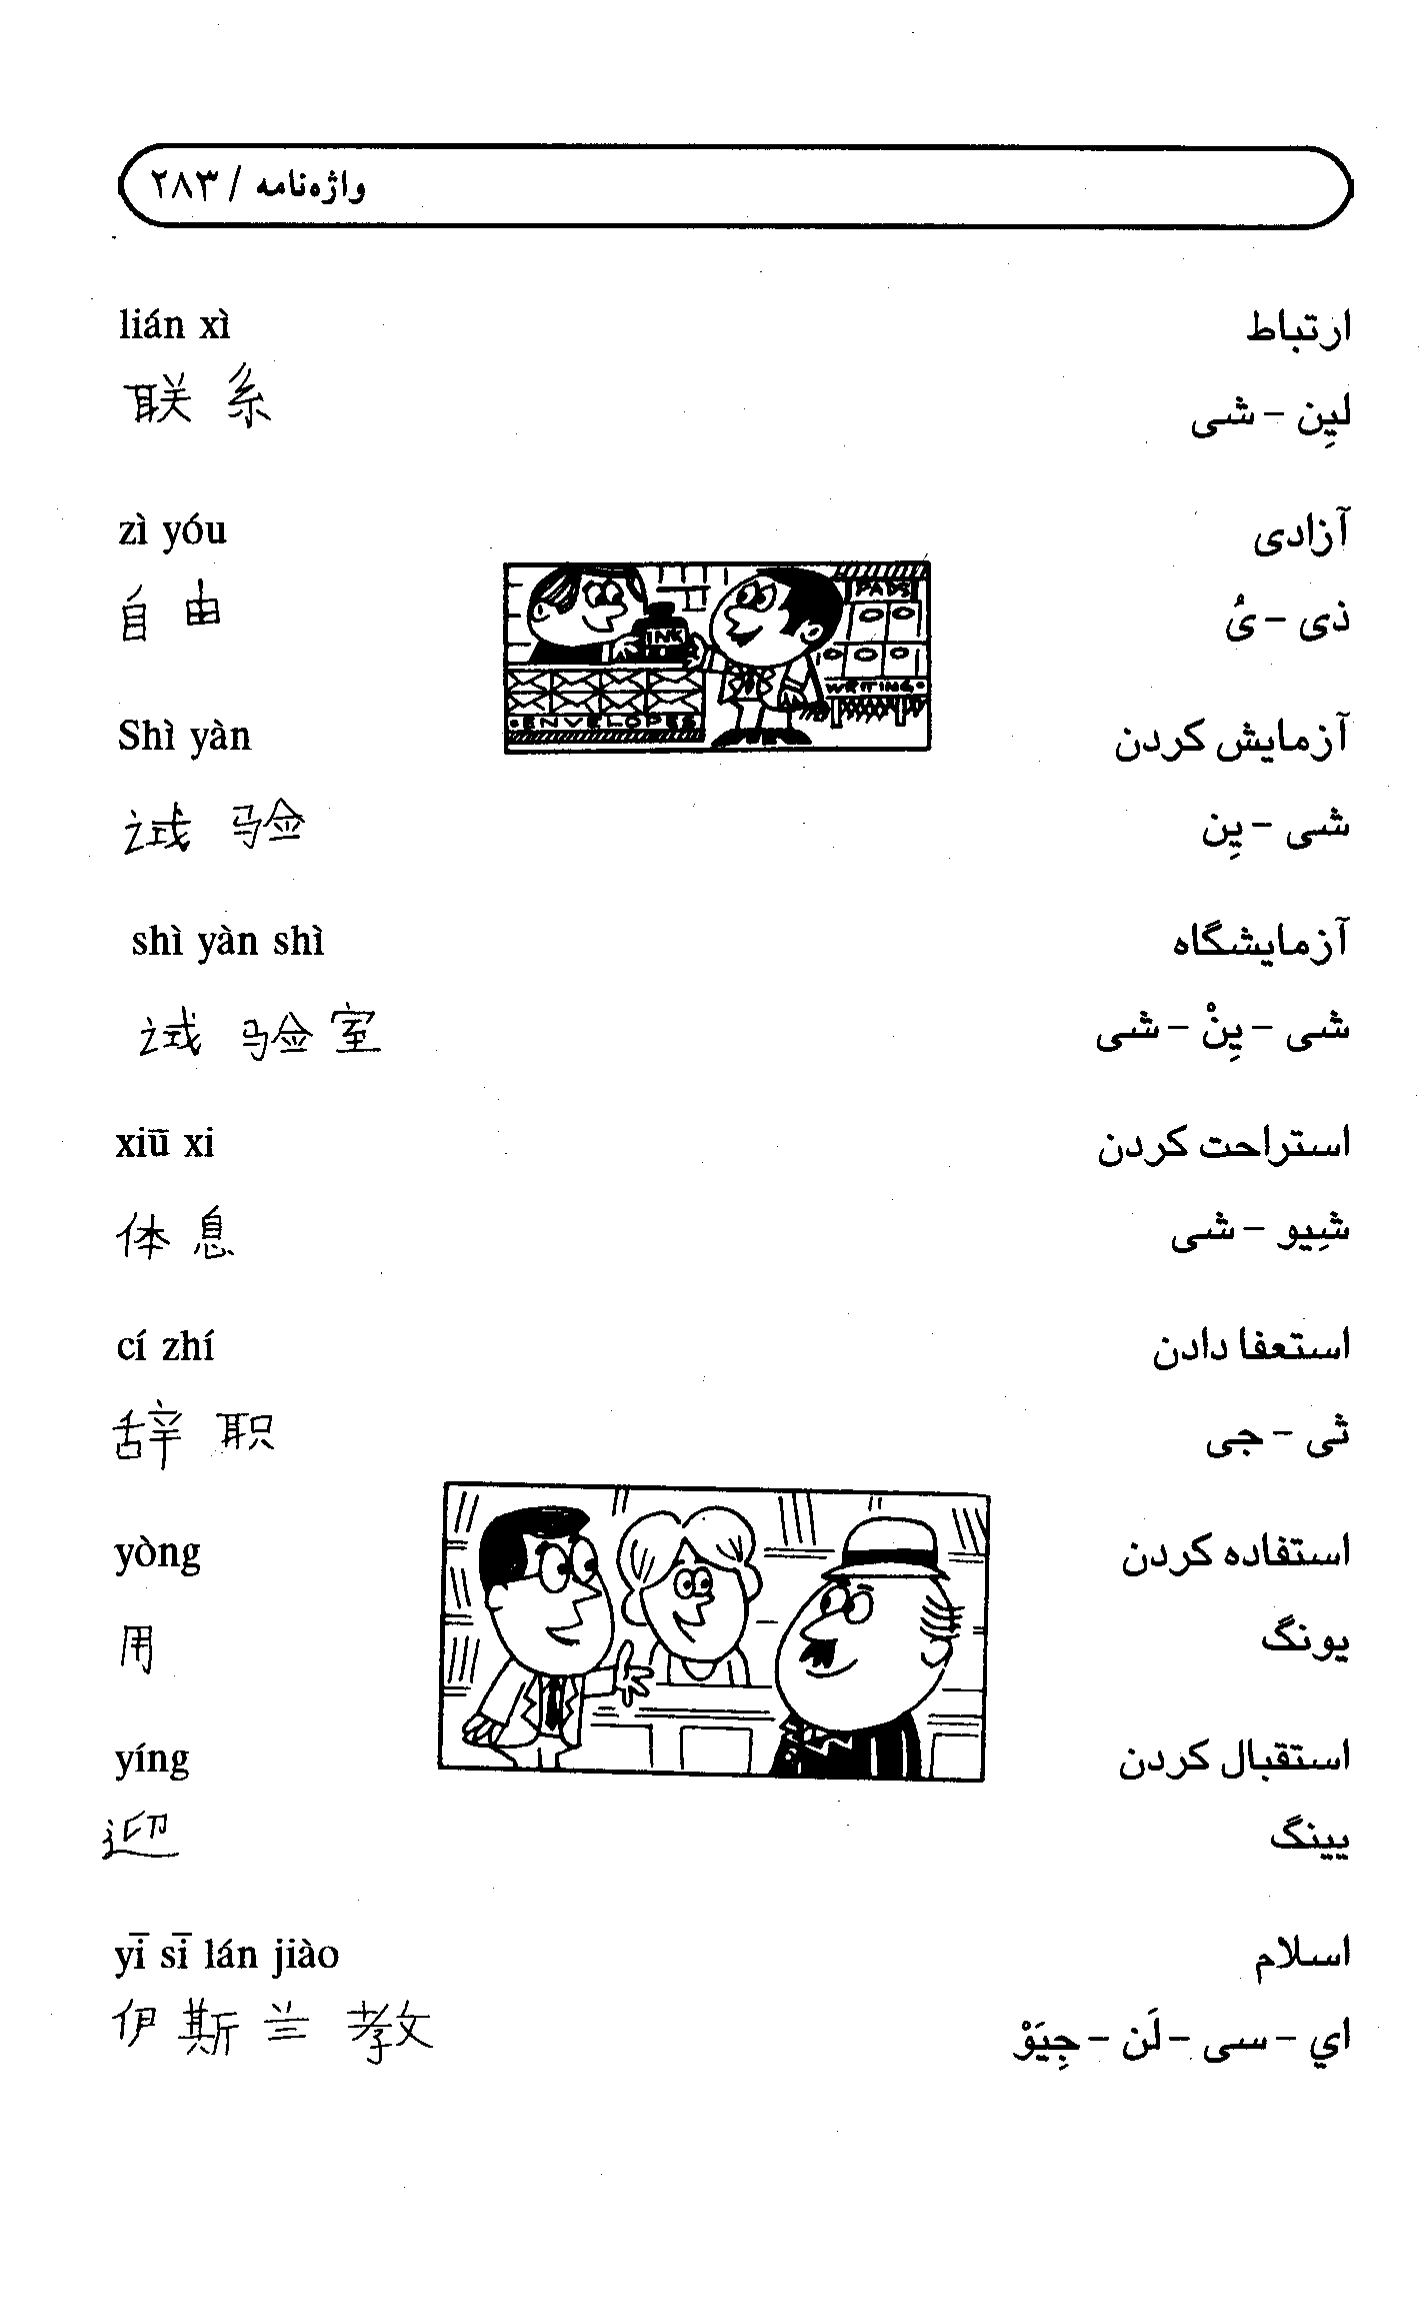 واژه‌نامه / ۲۸۳
lián xì
ارتباط
联 系
لیِن - شی
zì yóu
آزادی
自 由
ذی - یُ
INK
PADS
WRITING
ENVELOPES
Shì yàn
آزمایش کردن
试 验
شی - یِن
shì yàn shì
آزمایشگاه
试 验 室
شی - یِنْ - شی
xiū xi
استراحت کردن
体 息
شِیو - شی
cí zhí
استعفا دادن
辞 职
ثی - جی
yòng
استفاده کردن
用
یونگ
yíng
استقبال کردن
迎
یینگ
yī sī lán jiào
اسلام
伊 斯 兰 教
اي - سی - لَن - جِیَوْ